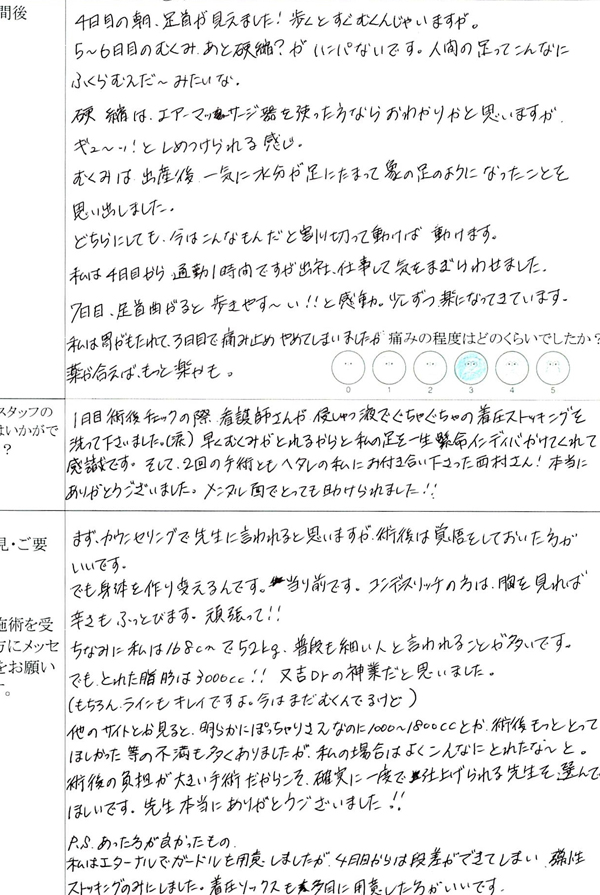 間後
4日目の朝、足首が見えました！歩くとすぐむくんじゃいますが。
5〜6日目のむくみ、あと硬縮？がハンパないです。人間の足ってこんなに
ふくらむんだ〜みたいな。
硬縮は、エアーマッサージ器を使った方ならおわかりかと思いますが、
ギュ〜ッ！としめつけられる感じ。
むくみは、出産後、一気に水分が足にたまって象の足のようになったことを
思い出しました。
どちらにしても、今はこんなもんだと割り切って動けば動けます。
私は4日目から通勤1時間ですが出社、仕事して気をまぎらわせました。
7日目、足首曲がると歩きやす〜い！！と感動。少しずつ楽になってきています。
私は胃がもたれて、3日目で痛み止めやめてしまいましたが
薬が合えば、もっと楽かも。
痛みの程度はどのくらいでしたか？
0 1 2 3 4 5
スタッフの
はいかがで
？
1日目術後チェックの際、看護師さんが侵しゅつ液でぐちゃぐちゃの着圧ストッキングを
洗って下さいました。(涙) 早くむくみがとれるからと私の足を一生懸命インディバかけてくれて
感謝です。そして、2回の手術ともヘタレの私にお付き合い下さった西村さん！本当に
ありがとうございました。メンタル面でとっても助けられました！！
見・ご要
施術を受
方にメッセ
をお願い
す。
まず、カウンセリングで先生に言われると思いますが、術後は覚悟をしておいた方が
いいです。
でも身体を作り変えるんです。当り前です。コンデンスリッチの方は、胸を見れば
辛さもふっとびます。頑張って！！
ちなみに私は168cmで52kg、普段も細い人と言われることが多いです。
でも、とれた脂肪は3000cc！！ 又吉Drの神業だと思いました。
(もちろん、ラインもキレイですよ。今はまだむくんでるけど)
他のサイトとか見ると、明らかにぽっちゃりさんなのに1000〜1800ccとか、術後もっととって
ほしかった等の不満も多くありましたが、私の場合はよくこんなにとれたな〜と。
術後の負担が大きい手術だからこそ、確実に一度で仕上げられる先生を選んで
ほしいです。先生本当にありがとうございました！！
P.S. あった方が良かったもの、
私はエターナルでガードルも用意しましたが、4日目からは段差ができてしまい、弾性
ストッキングのみにしました。着圧ソックスも多目に用意した方がいいです。